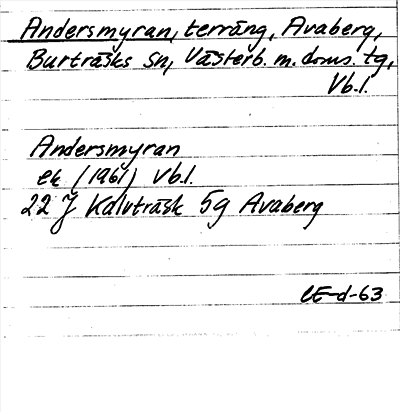 Andersmyran, terräng, Avaberg,
Burträsks sn, Västerb. m. doms. tg,
Vb.l.
Andersmyran
ek (1961) Vb.l.
22 J Kalvträsk 5g Avaberg
CE-d-63